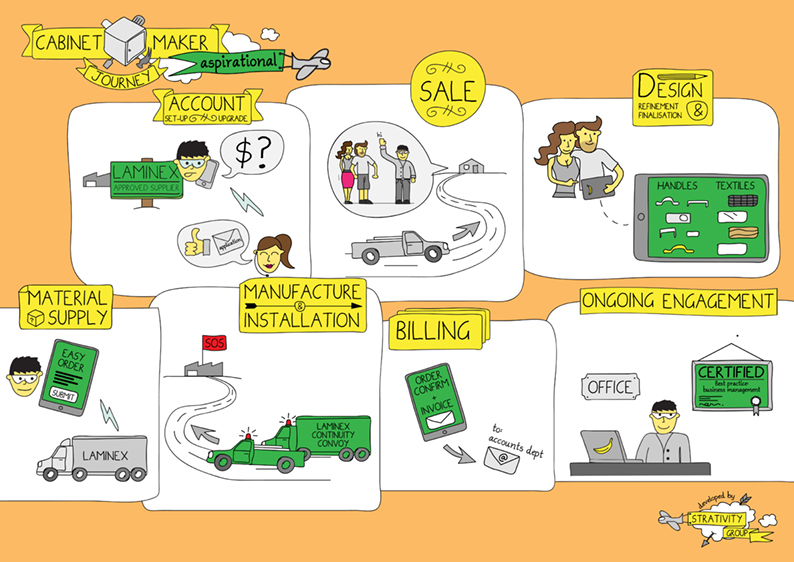 CABINET MAKER
JOURNEY
aspirational
ACCOUNT
SET-UP UPGRADE
LAMINEX
APPROVED SUPPLIER
$?
application
SALE
hi
DESIGN
REFINEMENT
FINALISATION &
HANDLES TEXTILES
MATERIAL
SUPPLY
EASY
ORDER
SUBMIT
LAMINEX
MANUFACTURE
&
INSTALLATION
SOS
LAMINEX
CONTINUITY
CONVOY
BILLING
ORDER
CONFIRM
+
INVOICE
to:
accounts dept
@
ONGOING ENGAGEMENT
OFFICE
CERTIFIED
Best practice
business management
developed by
STRATIVITY
GROUP